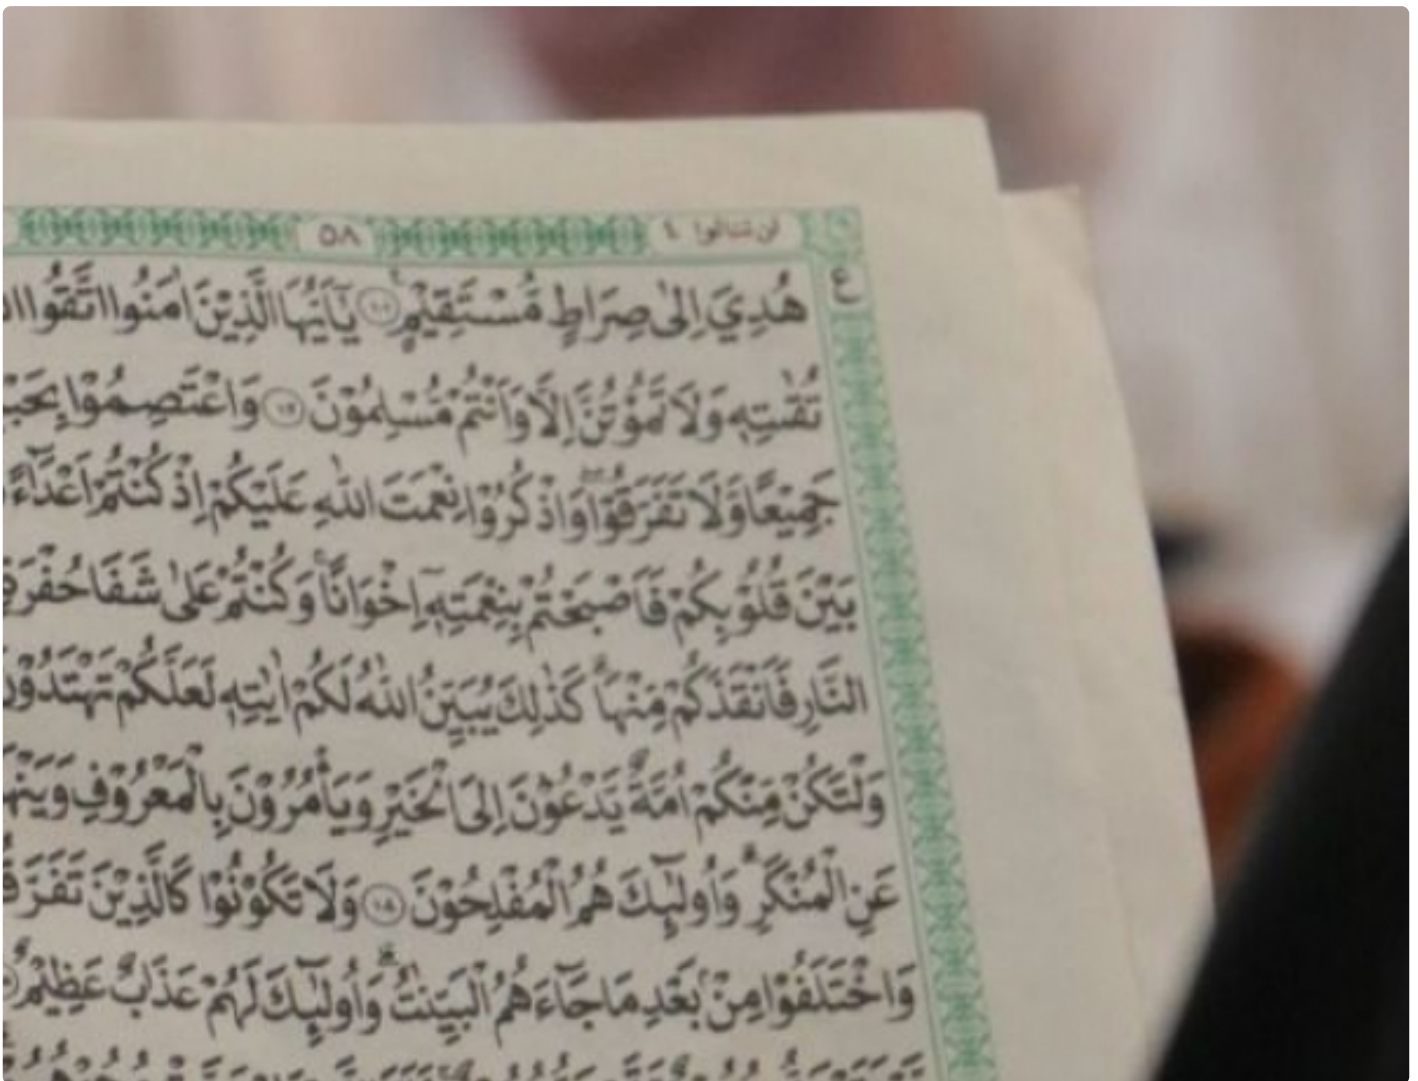 لن تنالوا ٤
٥٨
ع
هُدِيَ اِلٰى صِرَاطٍ مُّسْتَقِيْمٍ ١٠١ يٰٓاَيُّهَا الَّذِيْنَ اٰمَنُوا اتَّقُوا
تُقٰىتِهٖ وَلَا تَمُوْتُنَّ اِلَّا وَاَنْتُمْ مُّسْلِمُوْنَ ١٠٢ وَاعْتَصِمُوْا
جَمِيْعًا وَّلَا تَفَرَّقُوْا ۖ وَاذْكُرُوْا نِعْمَتَ اللّٰهِ عَلَيْكُمْ اِذْ كُنْتُمْ اَعْدَآءً
بَيْنَ قُلُوْبِكُمْ فَاَصْبَحْتُمْ بِنِعْمَتِهٖٓ اِخْوَانًاۚ وَكُنْتُمْ عَلٰى شَفَا
النَّارِ فَاَنْقَذَكُمْ مِّنْهَاۗ كَذٰلِكَ يُبَيِّنُ اللّٰهُ لَكُمْ اٰيٰتِهٖ لَعَلَّكُمْ تَهْتَدُوْنَ
وَلْتَكُنْ مِّنْكُمْ اُمَّةٌ يَّدْعُوْنَ اِلَى الْخَيْرِ وَيَأْمُرُوْنَ بِالْمَعْرُوْفِ
عَنِ الْمُنْكَرِۗ وَاُولٰۤىِٕكَ هُمُ الْمُفْلِحُوْنَ ١٠٤ وَلَا تَكُوْنُوْا كَالَّذِيْنَ
وَاخْتَلَفُوْا مِنْۢ بَعْدِ مَا جَآءَهُمُ الْبَيِّنٰتُۗ وَاُولٰۤىِٕكَ لَهُمْ عَذَابٌ عَظِيْمٌ